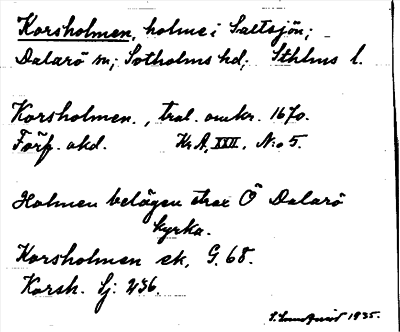 Korsholmen, holme i Saltsjön;
Dalarö sn; Sotholms hd; Sthlms l.
Korsholmen., tral. omkr. 1670.
Förf. okd. Kr. A, XXII, N:o 5.
Holmen belägen strax Ö Dalarö
kyrka.
Korsholmen ek, G. 68.
Korsh. Sj: 236.
S. Landquist 1935.